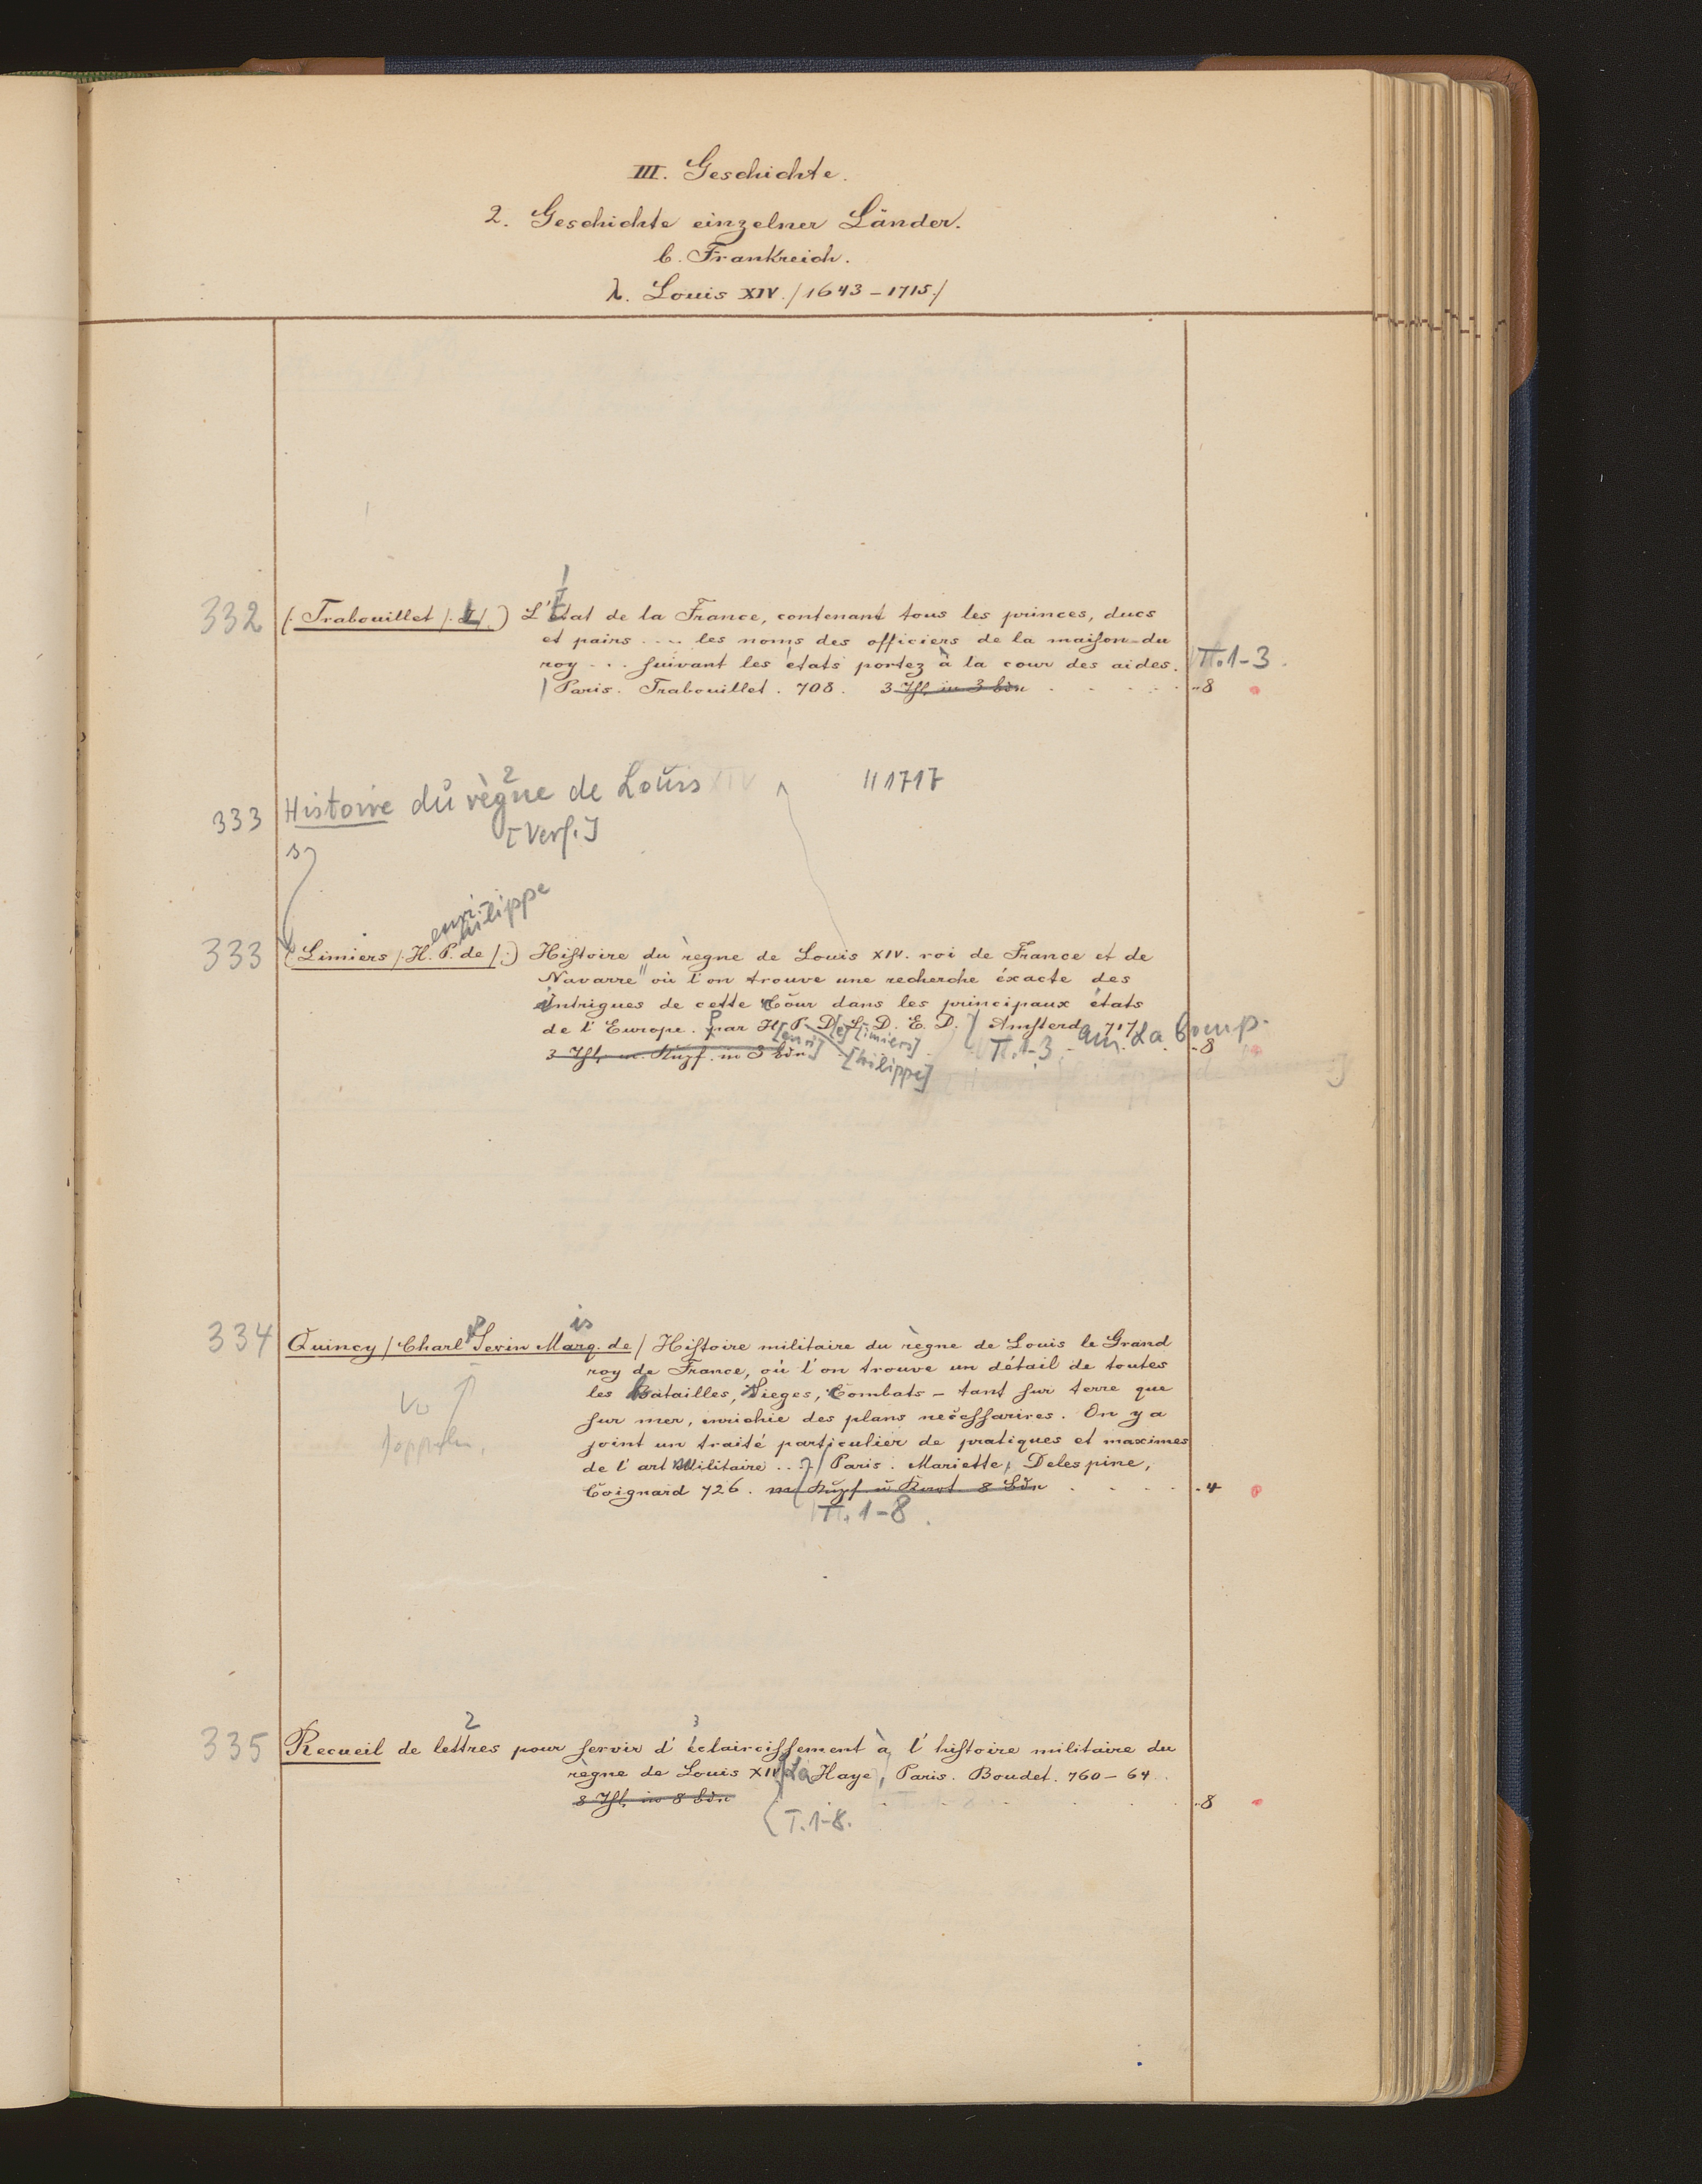 III. Geschichte.
2. Geschichte einzelner Länder.
b. Frankreich.
λ. Louis XIV. /1643-1715./
332 (. Trabouillet /. L/. ) L'État de la France, contenant tous les princes, ducs
et pairs .... les noms des officiers de la maiſon du
roy ... ſuivant les états portez à la cour des aides. T.1-3.
Paris. Trabouillet. 708. 3 Thl. in 3 Bdn ..8
333 Histoire dŭ règne de Loŭis XIV 11 1717
2
[Verf.]
s
enri- hilippe
333 (Limiers /. H. P. de /.) Hiſtoire du règne de Louis XIV. roi de France et de
Navarre" où l'on trouve une recherche éxacte des
intrigues de cette Cour dans les principaux états
de l'Europe. par H. P. D. L. D. E. D. Amſterd. 717.
[enri] [e] [imiers] aŭx La Comp.
3 Thl. m. Kupf. in 3 Bdn [hilippe] T.1-3 .8
334 Quincy / Charles Sevin Marq. de / Hiſtoire militaire du règne de Louis le Grand
is
roy de France, où l'on trouve un détail de toutes
les batailles, sieges, combats - tant ſur terre que
ſur mer, enrichie des plans neceſſarires. On y a
joint un traité particulier de pratiques et maximes
de l'art militaire ... Paris. Mariette, Delespine,
Coignard 726. m. Kupf u Kart 8 Bdn .4
T. 1-8.
335 Recueil de lettres pour ſervir d'éclairciſſement à l'hiſtoire militaire du
2 3
règne de Louis XIV. La Haye, Paris. Boudet. 760-64.
8 Thl. in 8 Bdn .8
T.1-8.